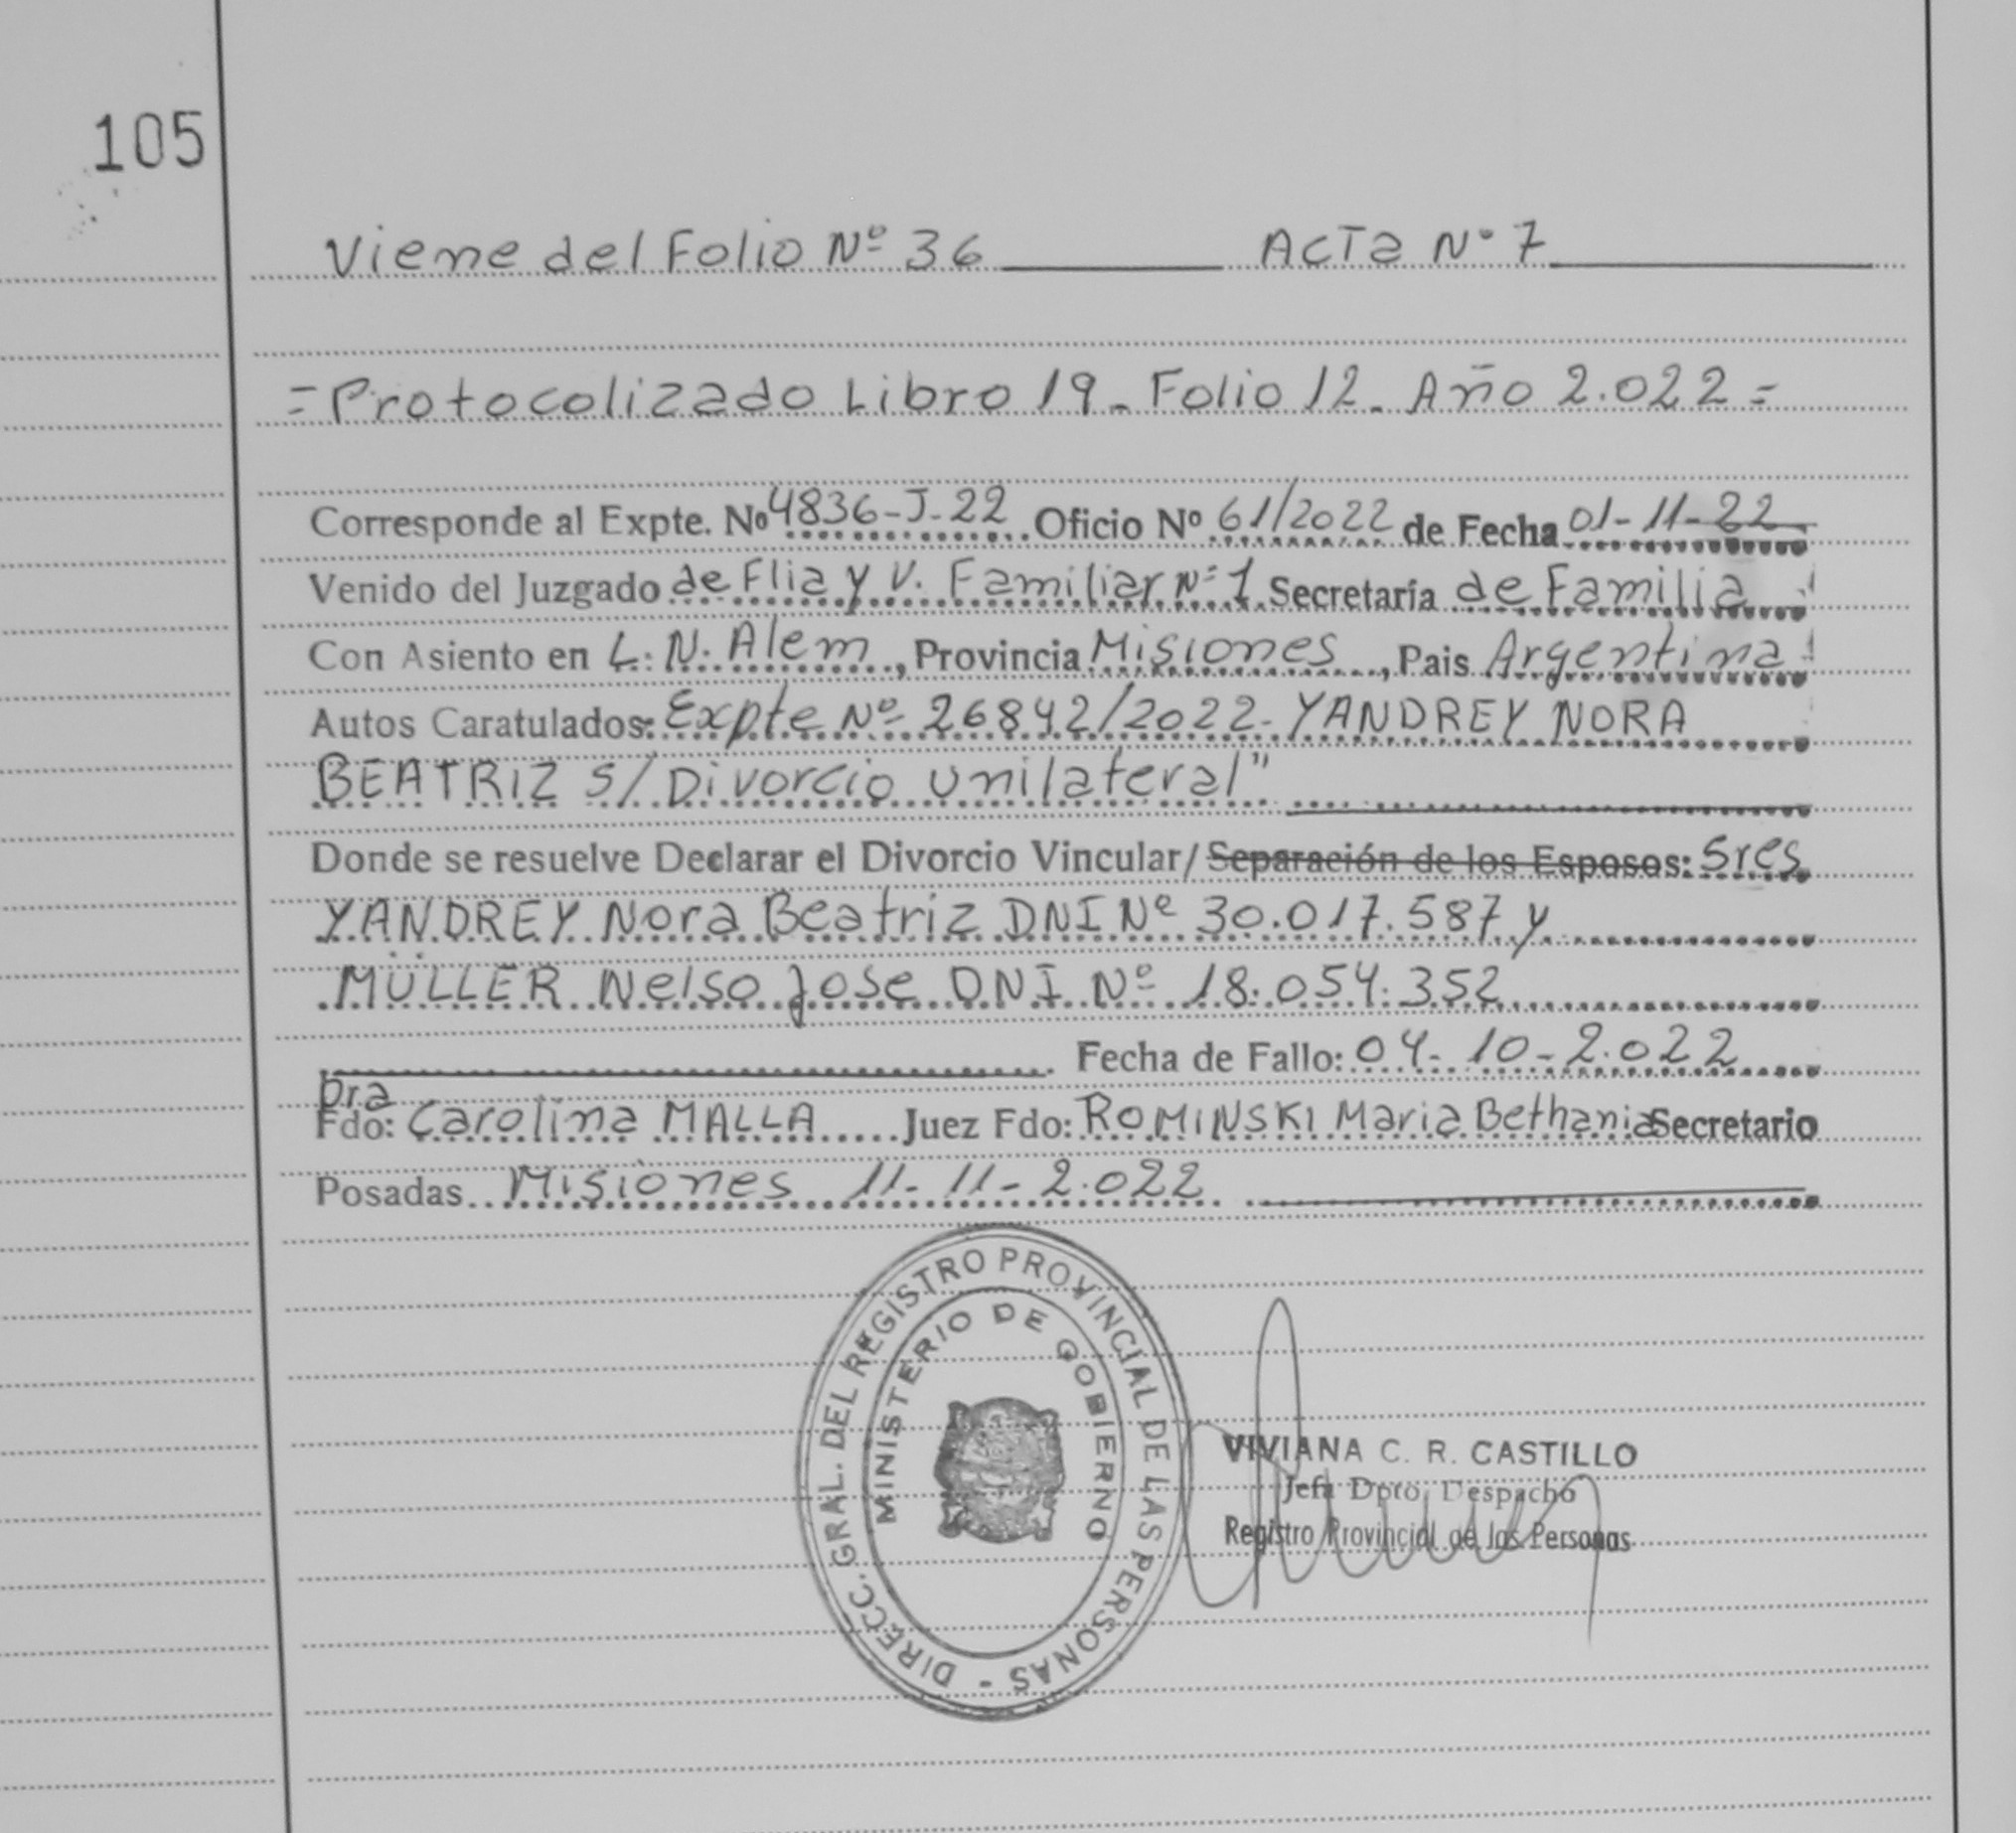 105
Viene del Folio Nº 36 ACTa Nº 7
=Protocolizado Libro 19_ Folio 12_ Año 2.022=
Corresponde al Expte. Nº 4836-J-22 Oficio Nº 61/2022 de Fecha 01-11-22
Venido del Juzgado de Flia y V. Familiar Nº 1 Secretaría de Familia
Con Asiento en L. N. Alem, Provincia Misiones, Pais Argentina
Autos Caratulados: Expte Nº 26842/2022- YANDREY NORA
BEATRIZ S/Divorcio Unilateral"
Donde se resuelve Declarar el Divorcio Vincular/ Separación de los Esposos: Sres
YANDREY Nora Beatriz DNI Nº 30.017.587 y
MÜLLER Nelso Jose DNI Nº 18.054.352
Fecha de Fallo: 04-10-2.022
Dra
Fdo: Carolina MALLA Juez Fdo: ROMINSKI Maria Bethania Secretario
Posadas Misiones 11-11-2.022
DIRECC. GRAL. DEL REGISTRO PROVINCIAL DE LAS PERSONAS -
MINISTERIO DE GOBIERNO
VIVIANA C. R. CASTILLO
Jefa Dpto. Despacho
Registro Provincial de las Personas